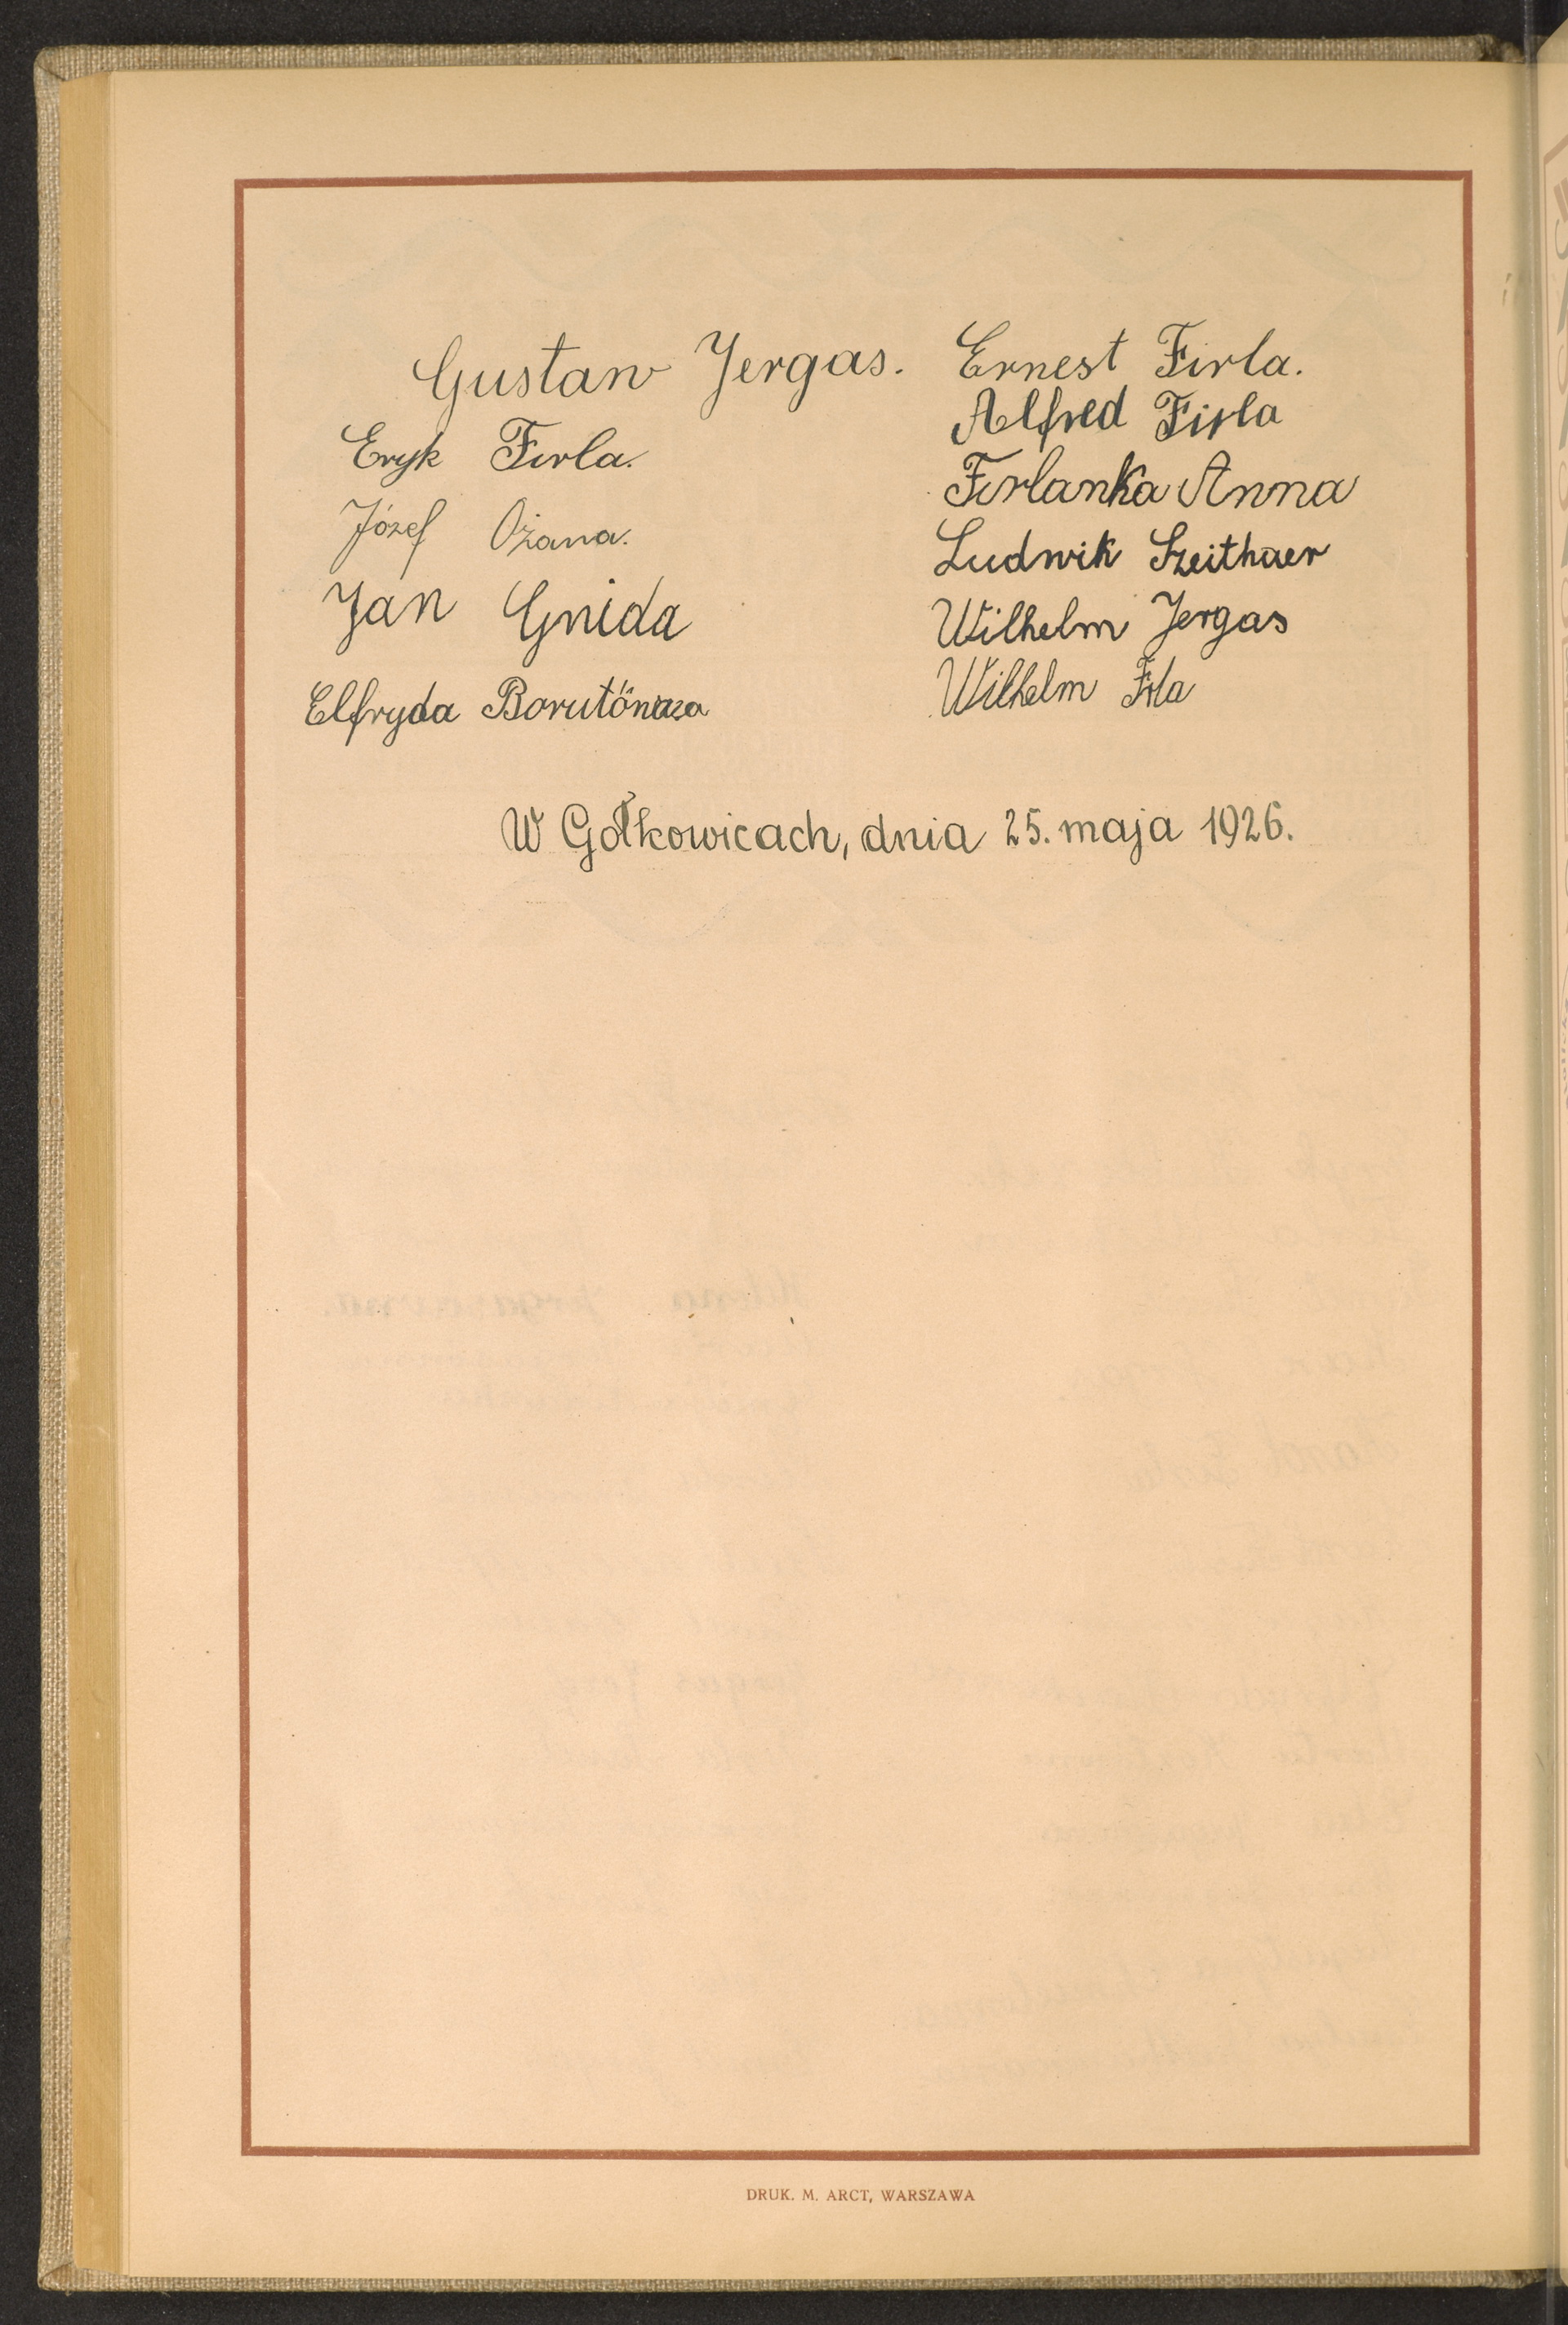 Gustaw Jergas.
Eryk Firla.
Józef Ożana.
Jan Gnida
Elfryda
Ernest Firla.
Alfred Firla
Firlanka Anna
Ludwik Szeithaer
Wilhelm Jergas
Wilhelm Firla
W Gołkowicach, dnia 25. maja 1926.
DRUK. M. ARCT, WARSZAWA